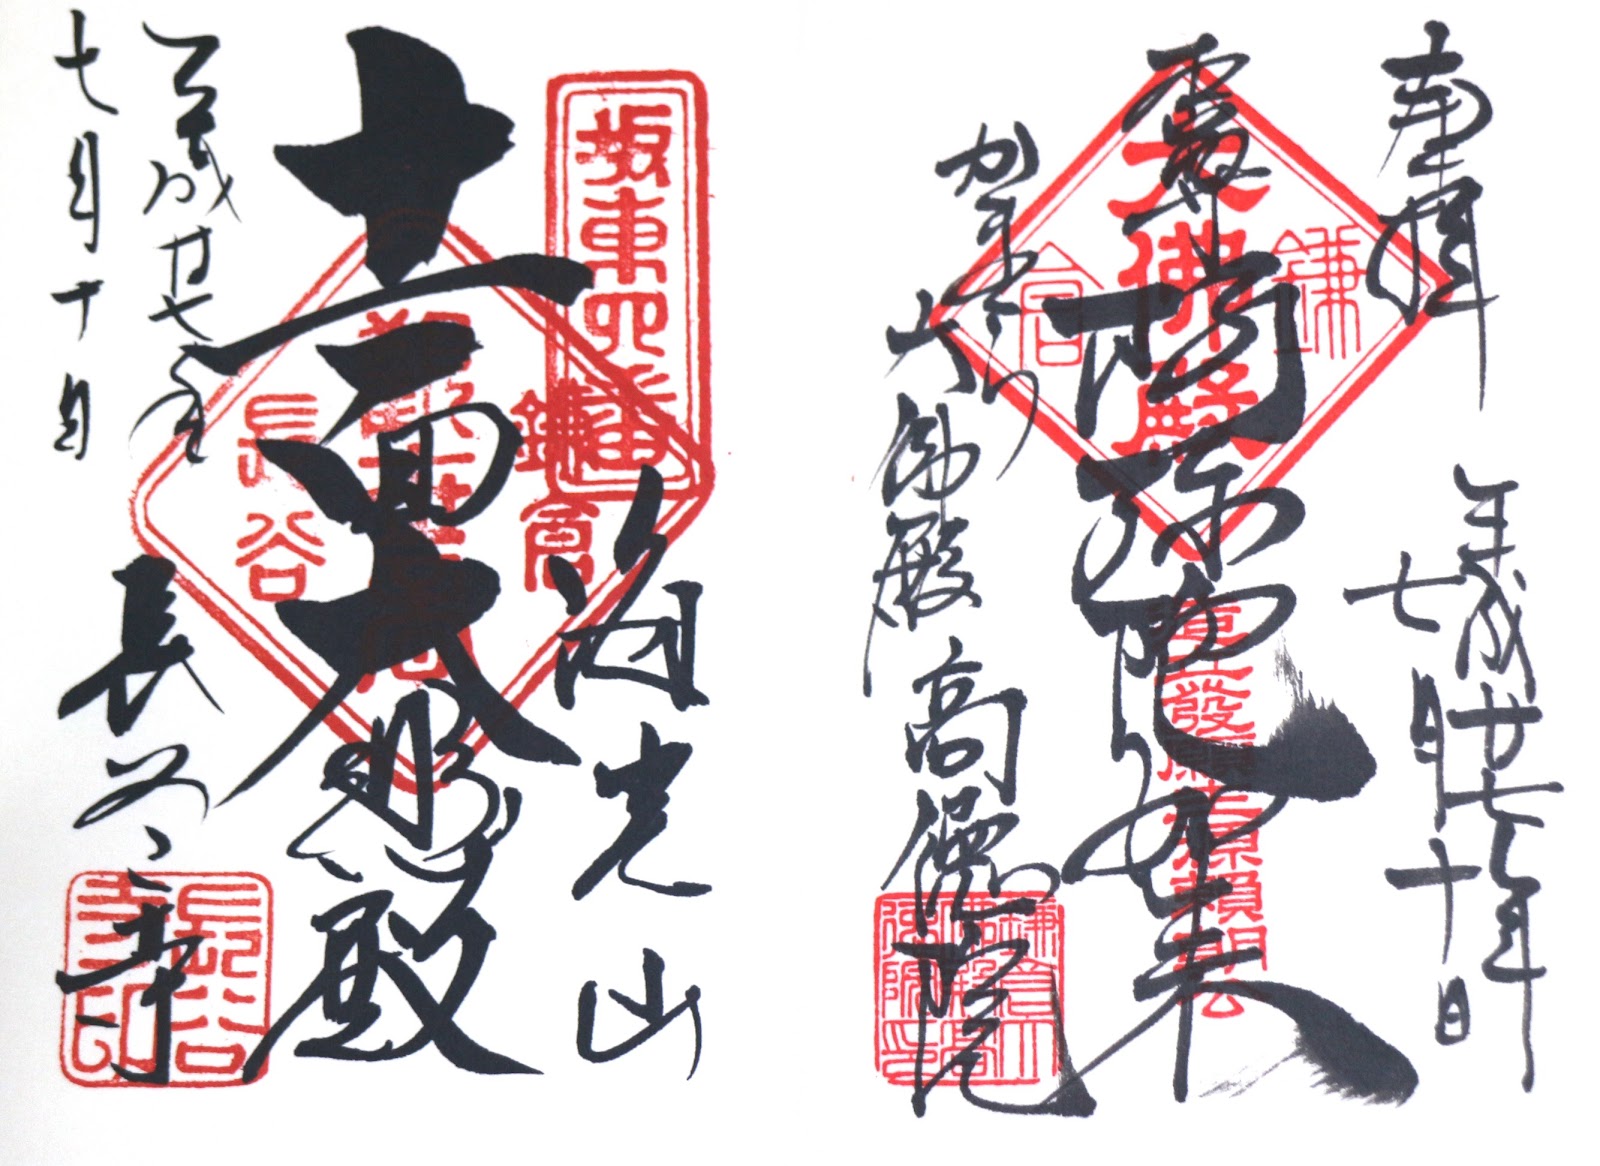 奉拝
平成廿七年
七月十日
露坐
阿弥陀如来
かまくら
大仏殿
高徳院
鎌
倉
大佛殿
海光山
十一面大悲殿
長谷寺
平成廿七年
七月十日
坂東四番
鎌倉
長谷
長谷寺印